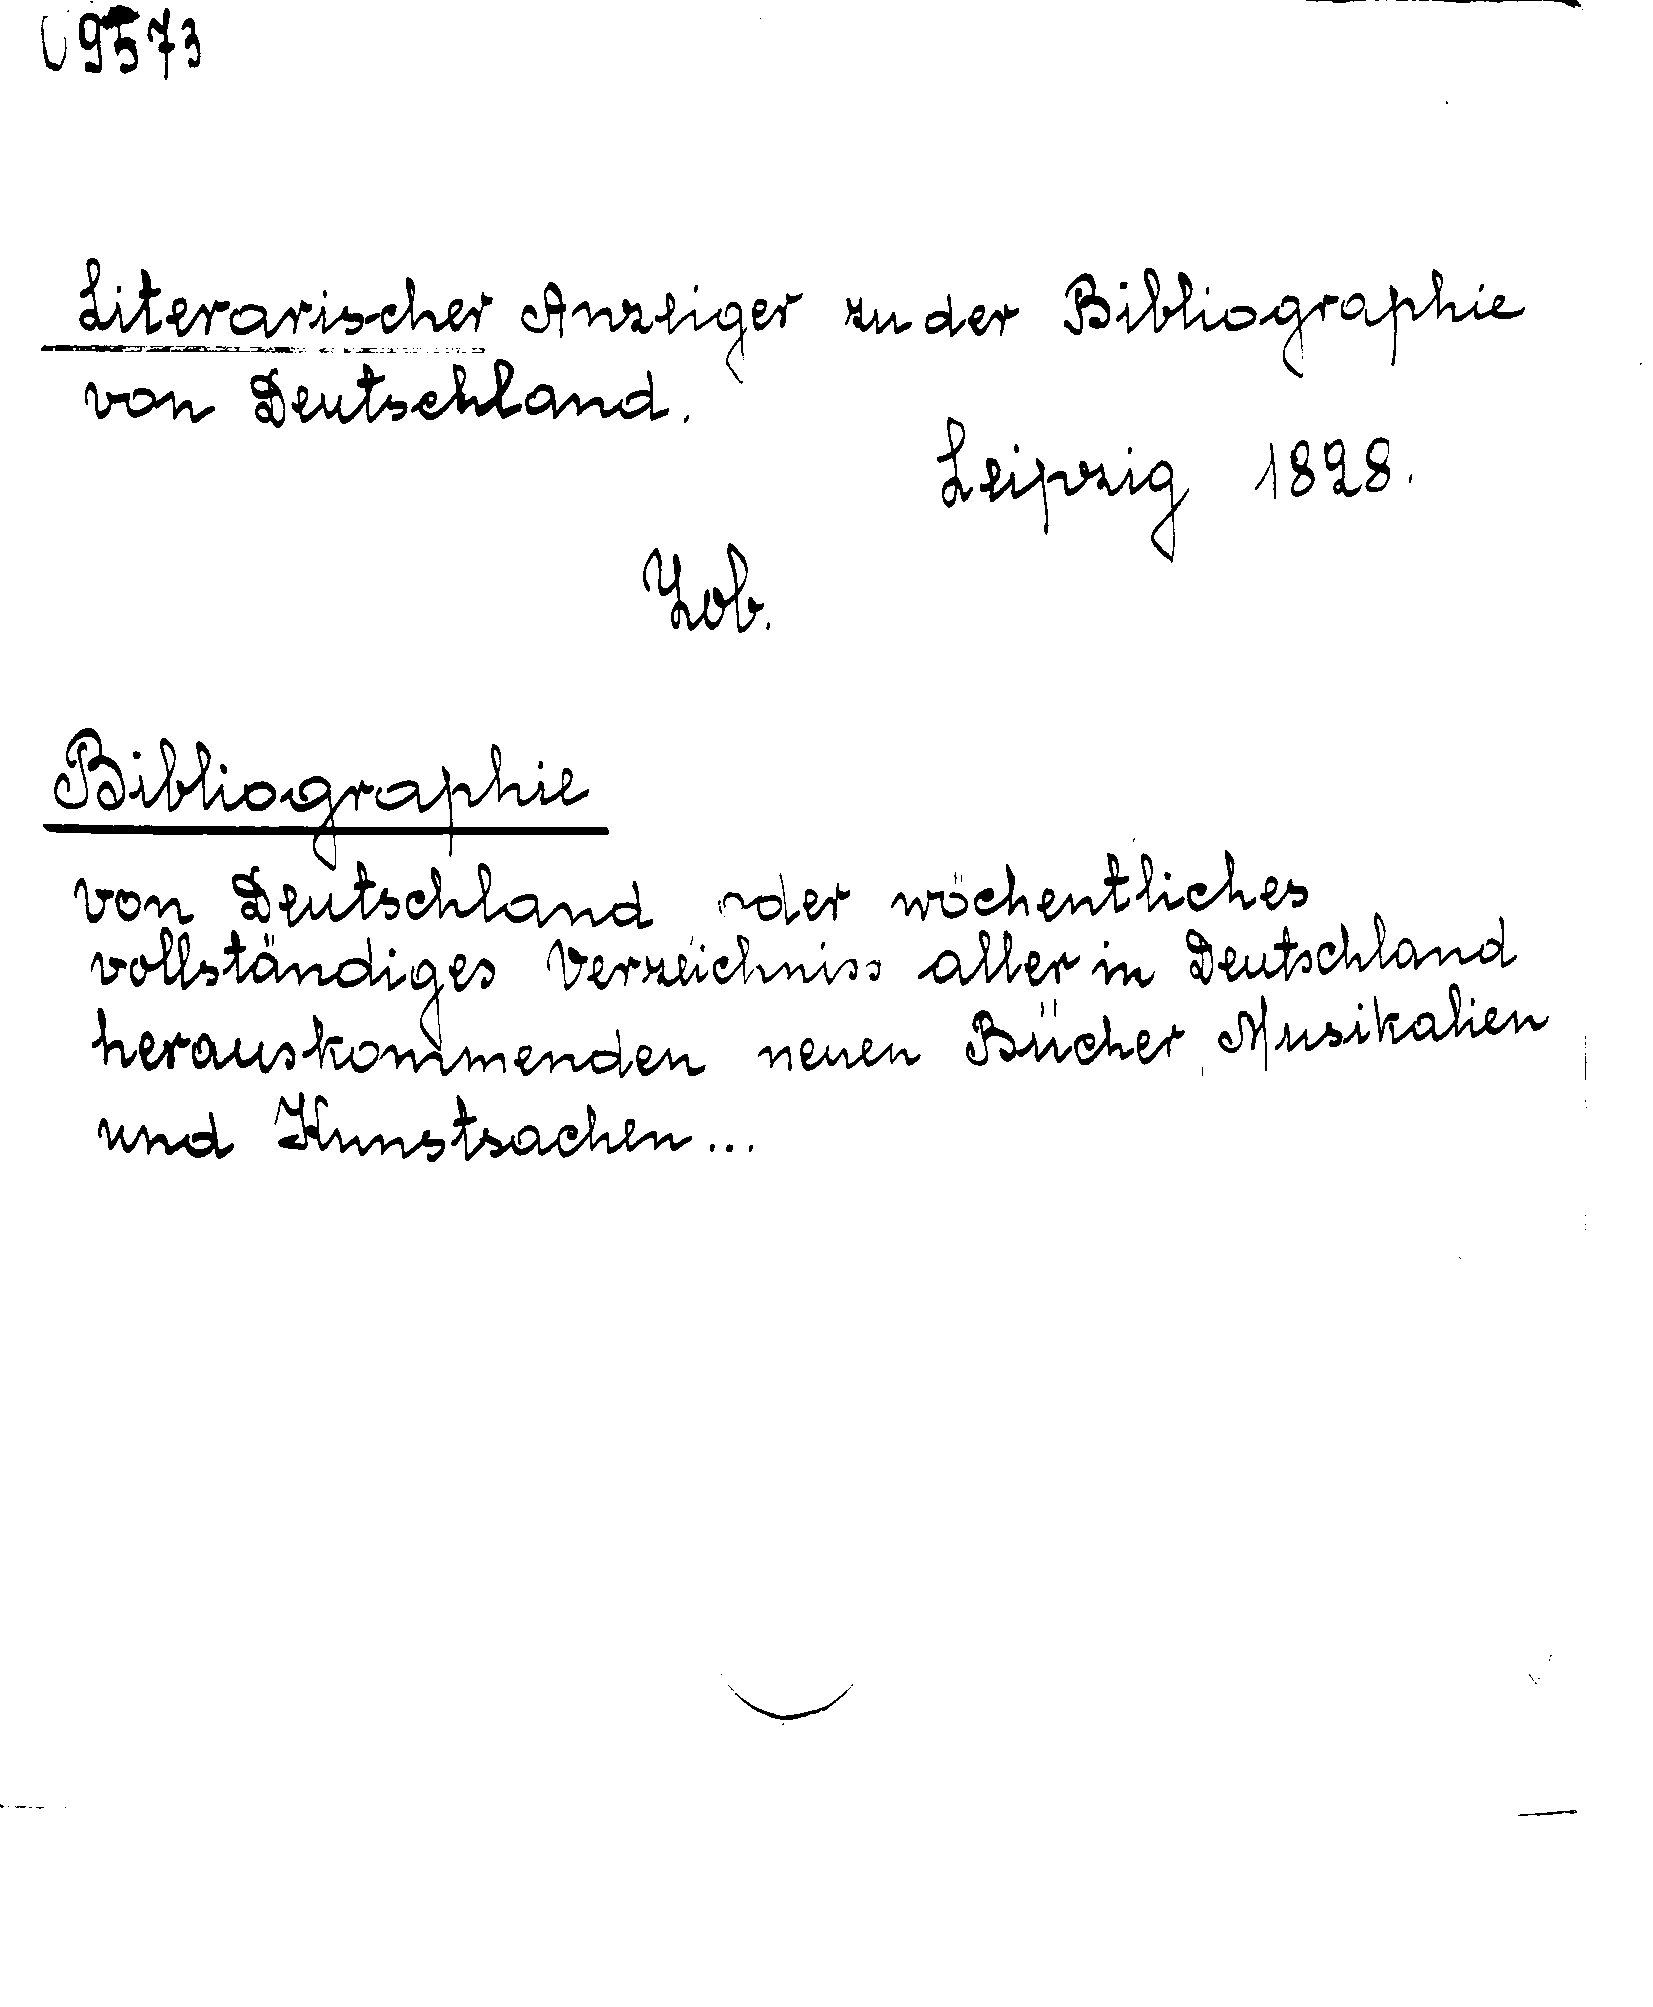 U 9573
Literarischer Anzeiger zu der Bibliographie
von Deutschland.
Leipzig 1828.
Zob.
Bibliographie
von Deutschland oder wöchentliches
vollständiges Verzeichniss aller in Deutschland
herauskommenden neuen Bücher, Musikalien
und Kunstsachen...